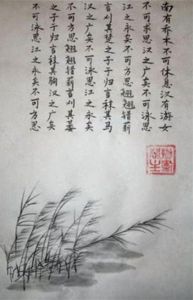 南有乔木不可休息汉有游女
不可求思汉之广矣不可泳思
江之永矣不可方思翘翘错薪
言刈其楚之子于归言秣其马
汉之广矣不可泳思江之永矣
不可方思翘翘错薪言刈其蒌
之子于归言秣其驹汉之广矣
不可泳思江之永矣不可方思